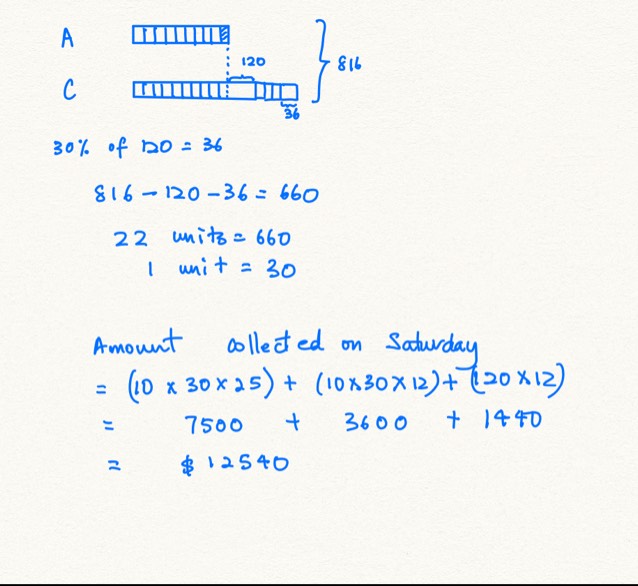 A
120
816
C
36
30% of 120 = 36
816 - 120 - 36 = 660
22 units = 660
1 unit = 30
Amount collected on Saturday
= (10 x 30 x 25) + (10 x 30 x 12) + (120 x 12)
= 7500 + 3600 + 1440
= $ 12540